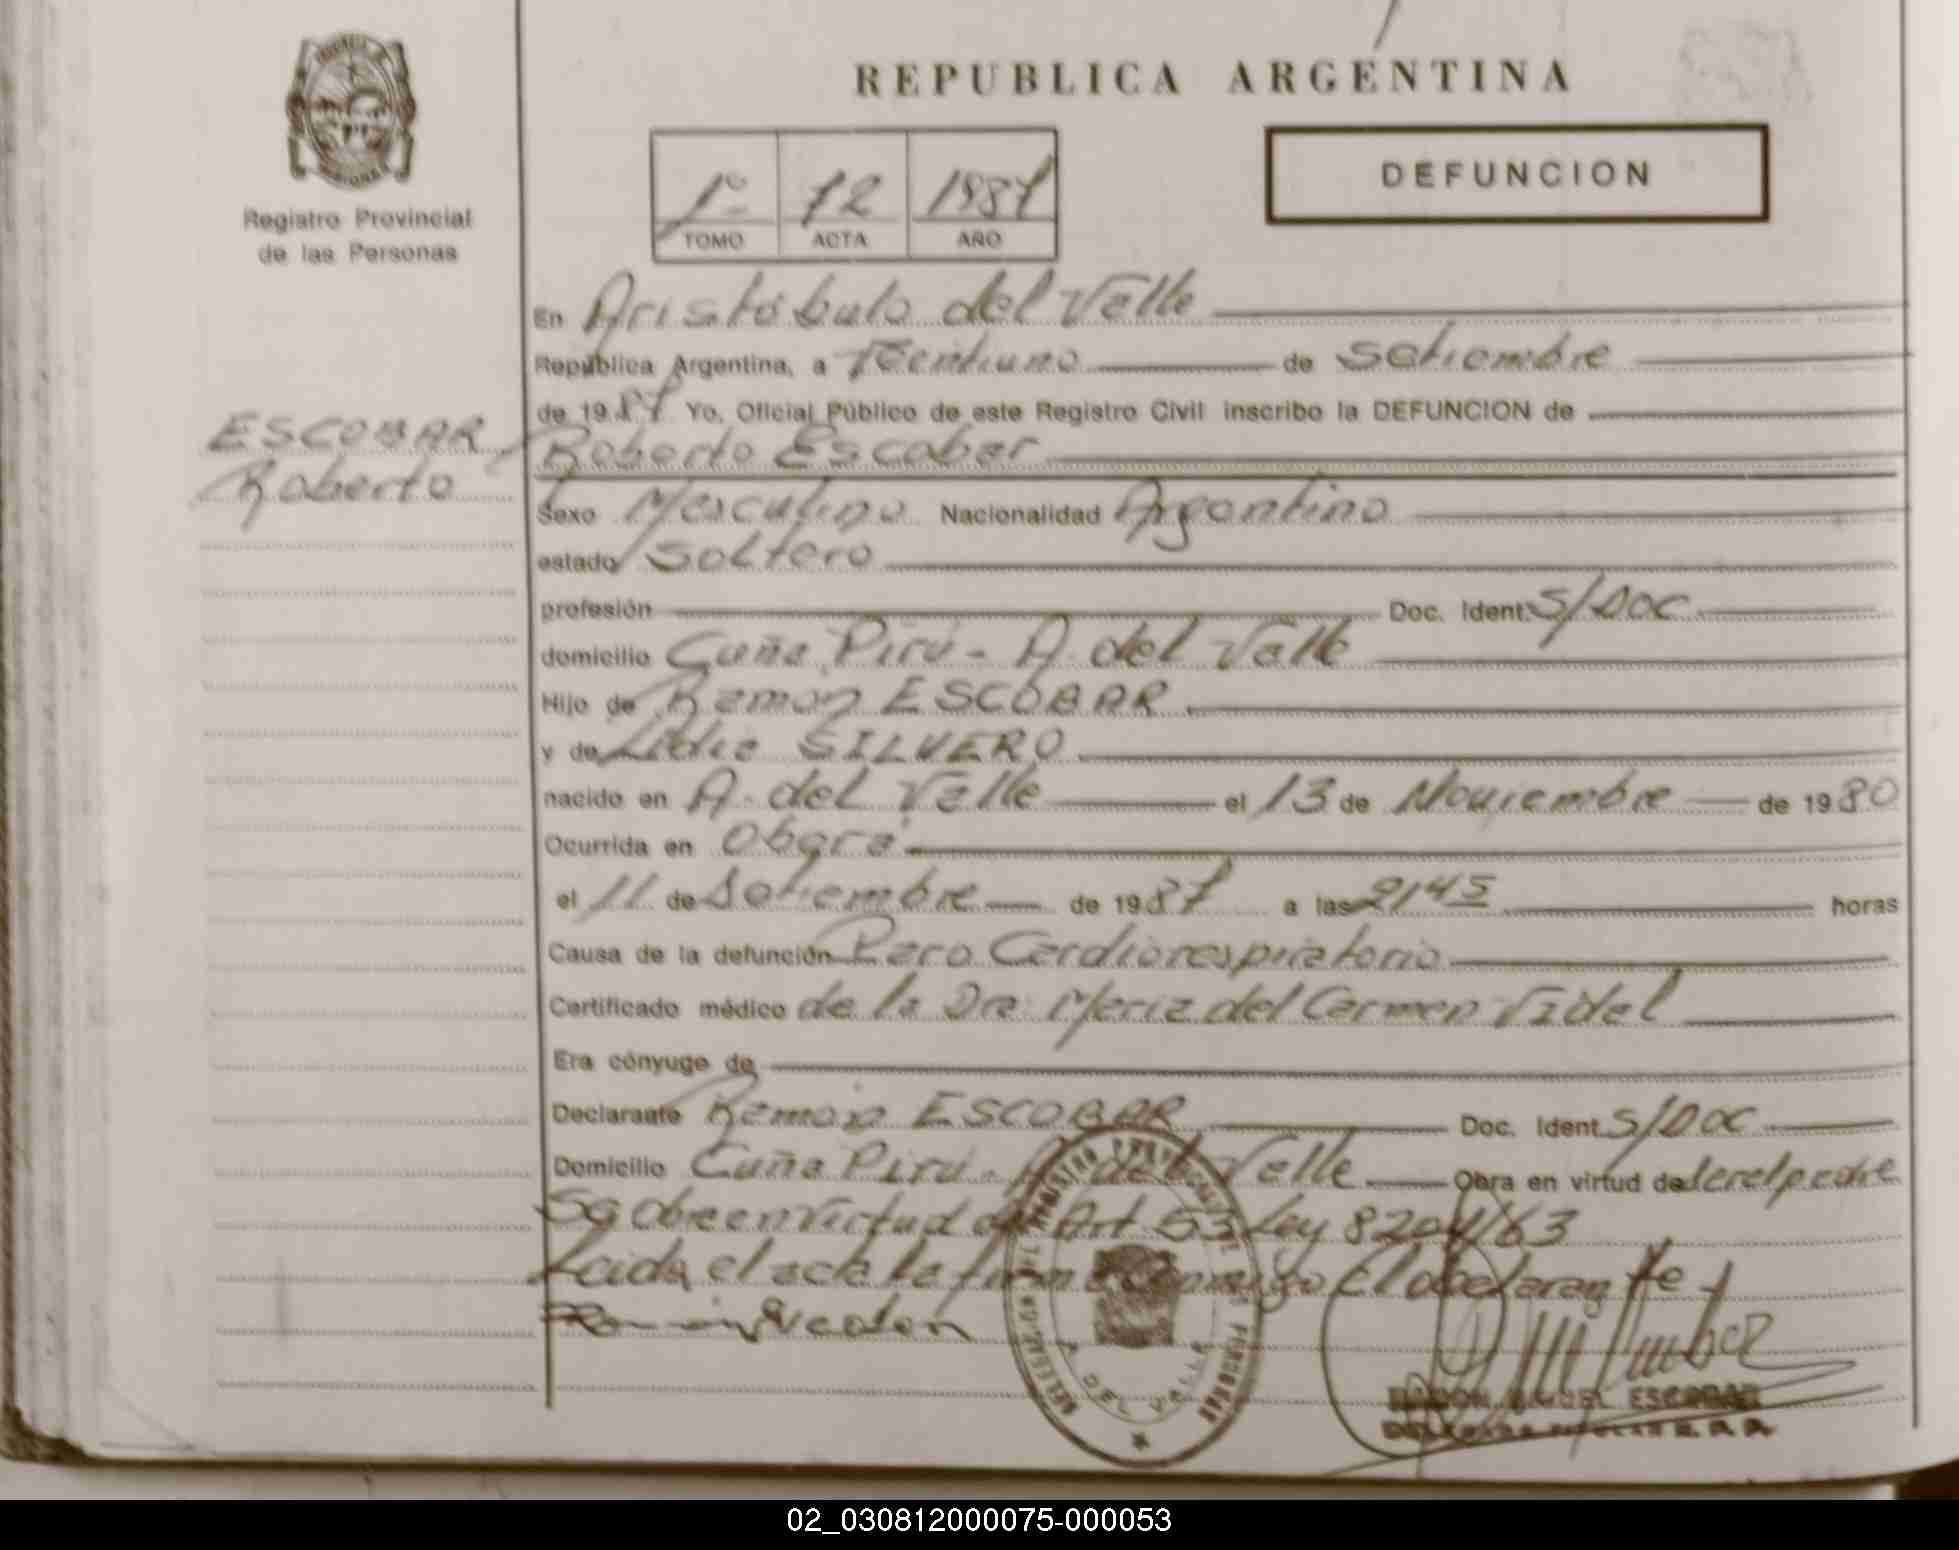 REPUBLICA ARGENTINA
DEFUNCION
1º 72 1987
TOMO ACTA AÑO
Registro Provincial
de las Personas
ESCOBAR
Roberto
En Aristóbulo del Valle
República Argentina, a Veintiuno de Setiembre
de 1987 Yo, Oficial Público de este Registro Civil inscribo la DEFUNCION de
Roberto Escobar
Sexo Masculino Nacionalidad Argentino
estado Soltero
profesión Doc. Ident. S/Doc
domicilio Cuña Pirú - A. del Valle
Hijo de Ramón ESCOBAR
y de Lidia SILVERO
nacido en A. del Valle el 13 de Noviembre de 1980
Ocurrida en Oberá
el 11 de Setiembre de 1987 a las 21 45 horas
Causa de la defunción Paro Cardiorespiratorio
Certificado médico de la Dra. Maria del Carmen Vidal
Era cónyuge de
Declarante Ramón ESCOBAR Doc. Ident. S/Doc
Domicilio Cuña Pirú - A. del Valle Obra en virtud de ser el padre
Se obra en virtud del Art. 53 Ley 8204/63
Leida el acta la firma conmigo el declarante
A. DEL VALLE
ESCOBAR
02_030812000075-000053